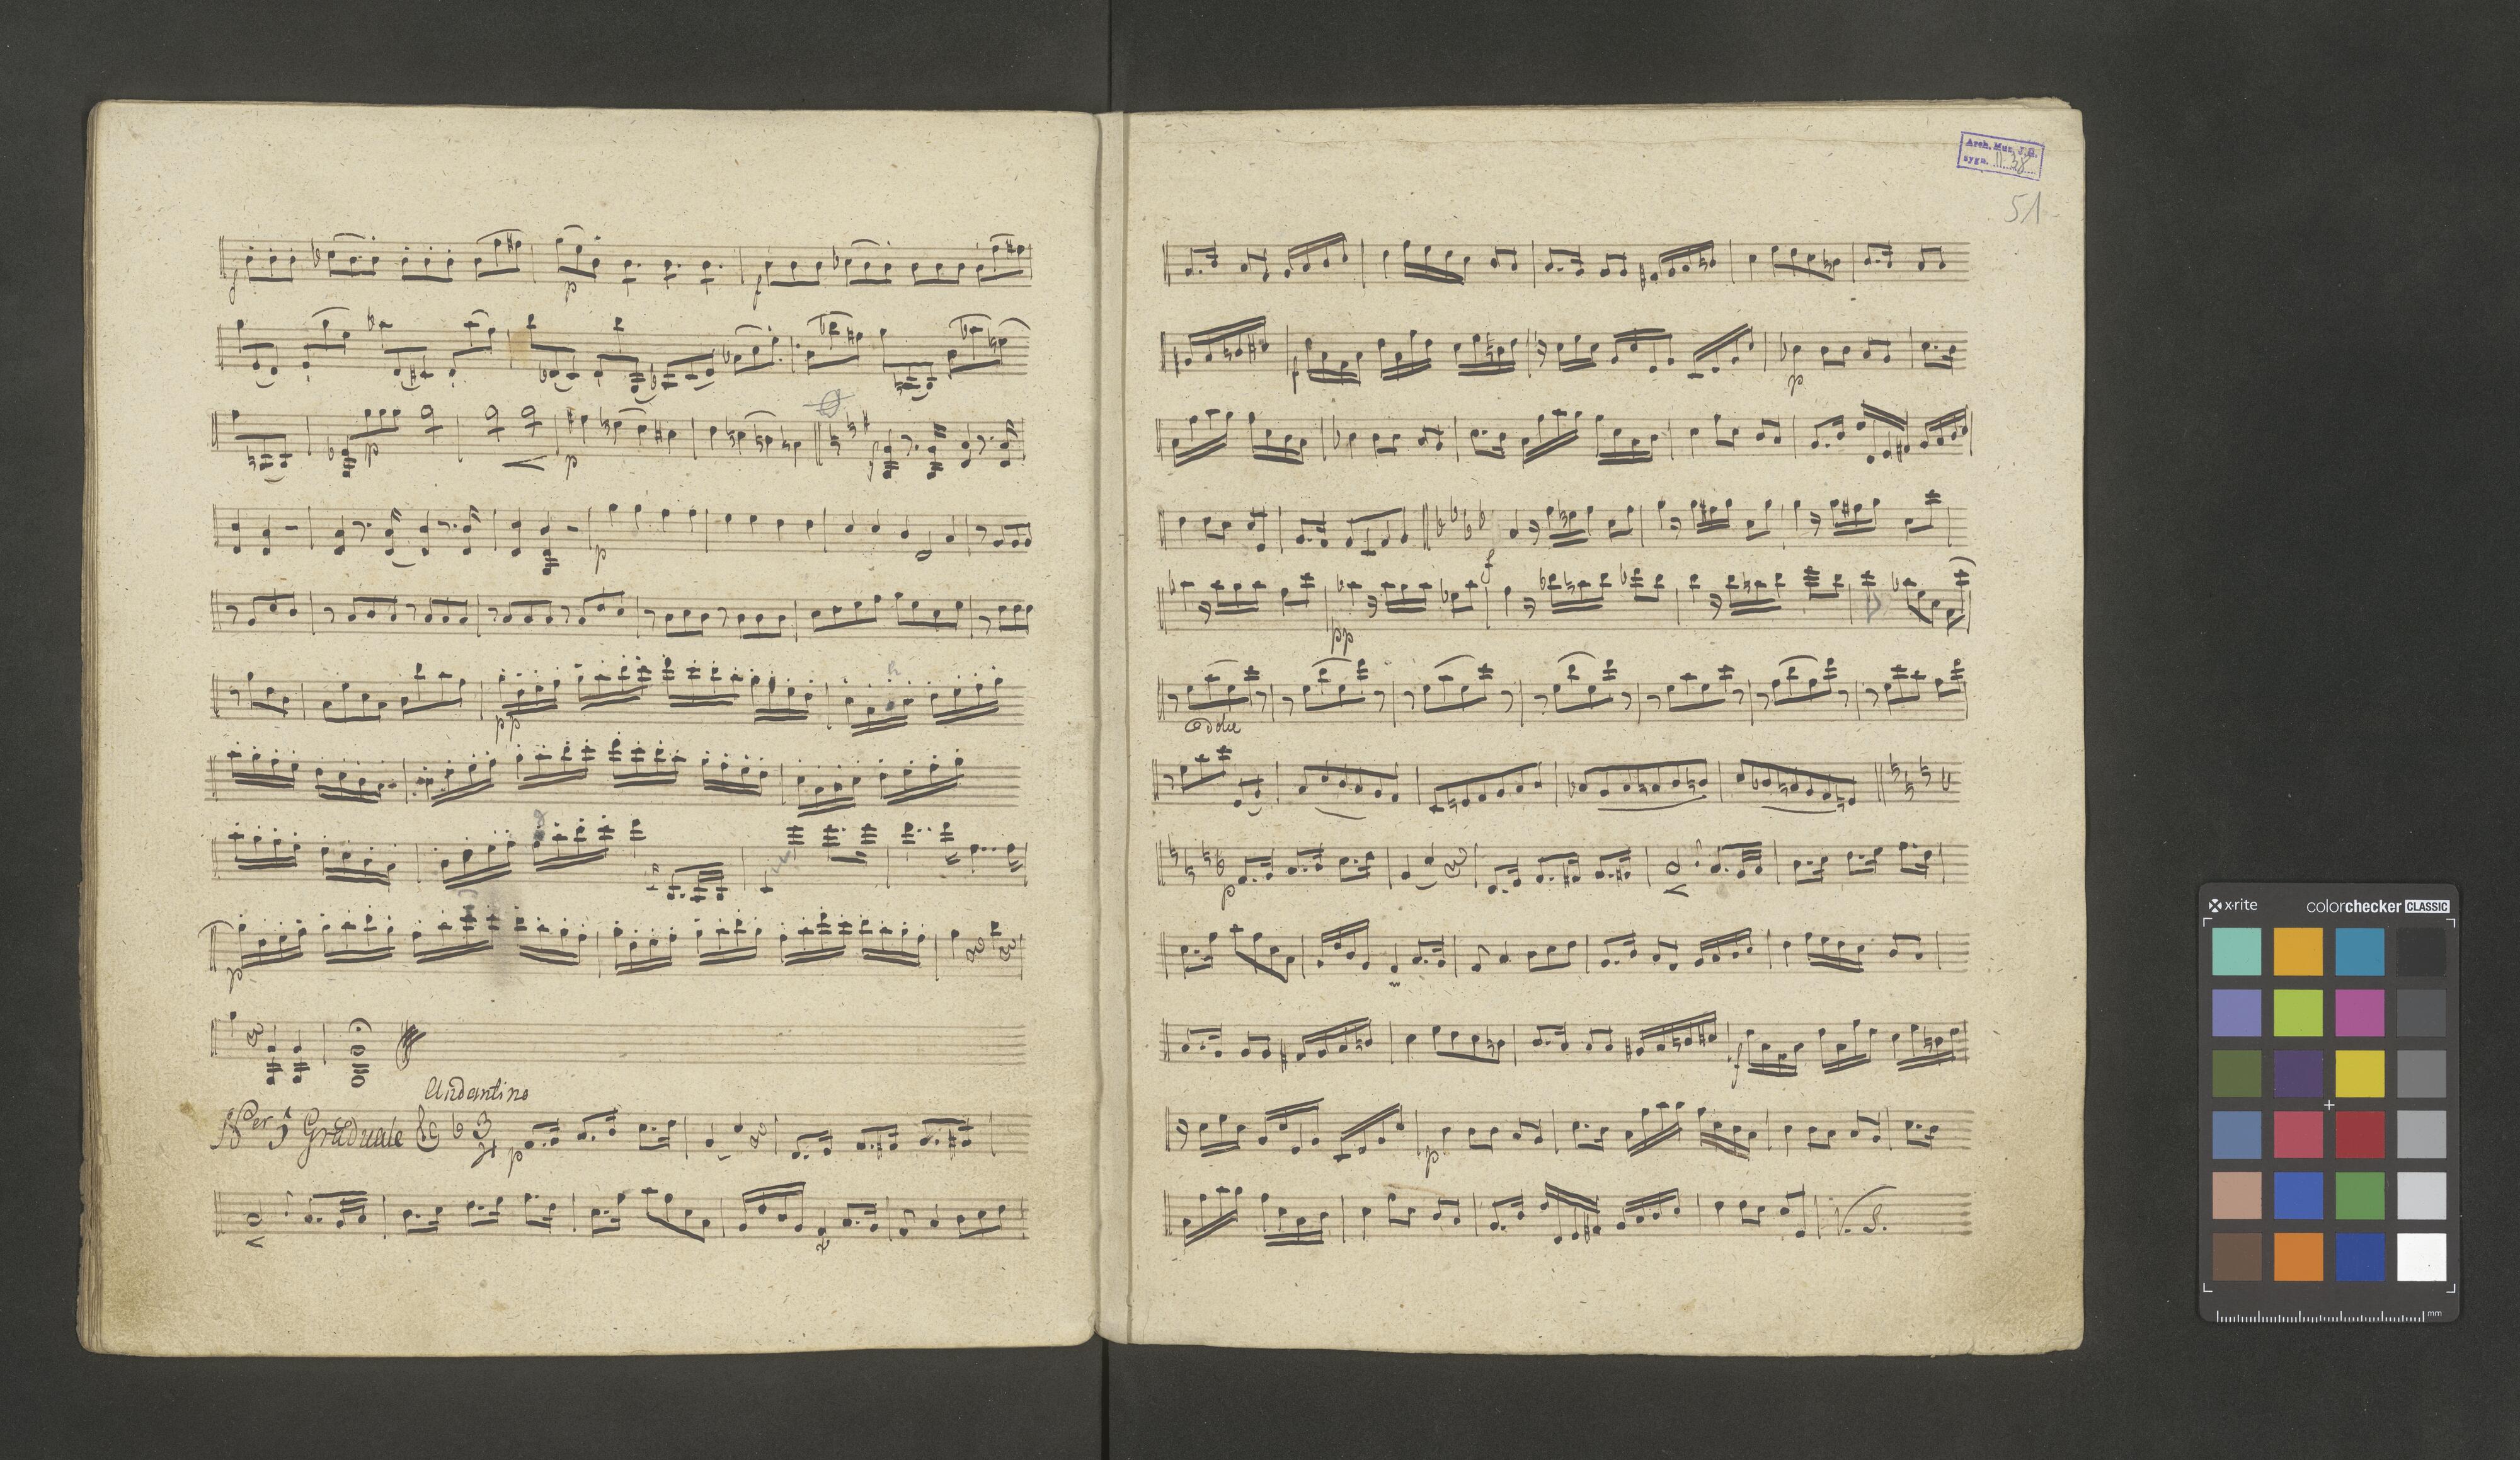 f p f
p p
p
pp
p
Andantino
Ner 5 Graduale 3 4 p
Arch. Muz. J.G.
sygn. II 38
51
p
f
pp
dolce
p
f
p
V. S.
x-rite colorchecker CLASSIC
mm